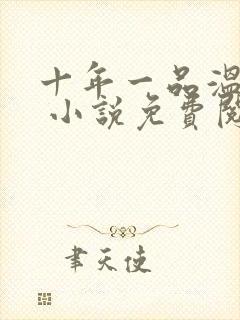 十年一品溫
小說免費閱
聿天使